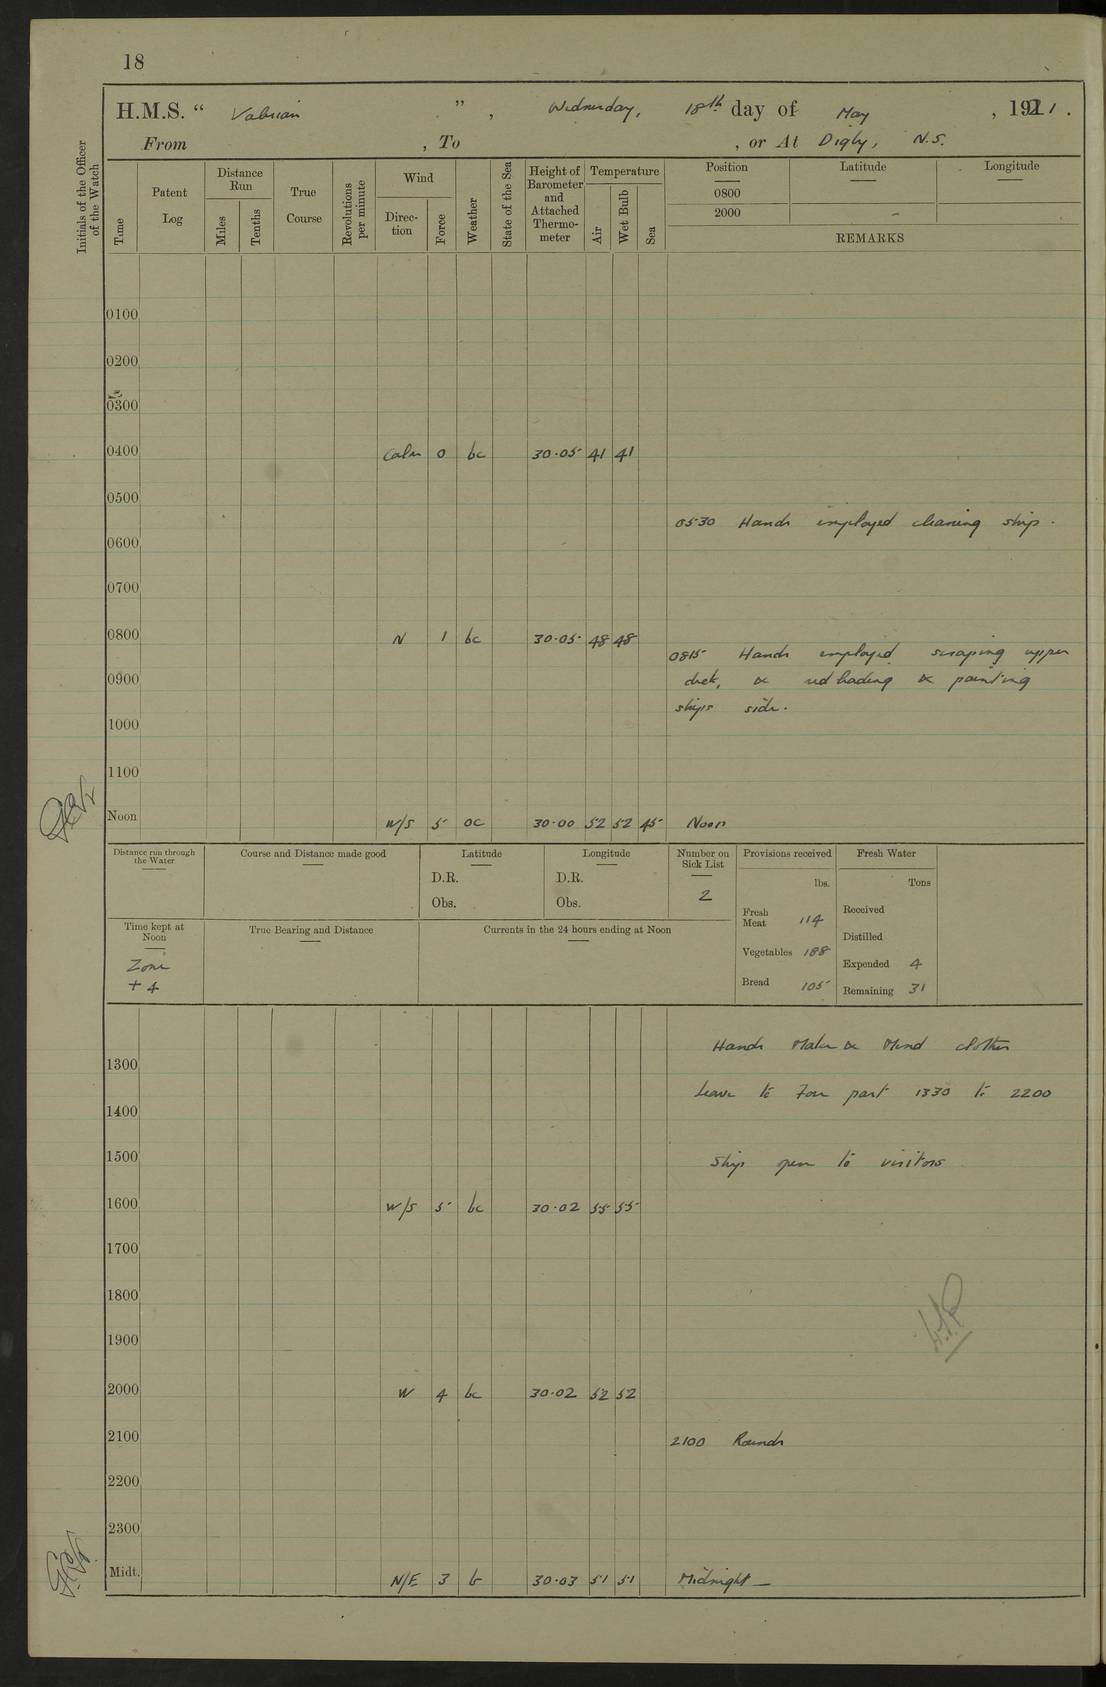 18
H.M.S. “ Valerian ” , Wednesday, 18th day of May , 1921 .
From , To , or At Digby, N.S.
Initials of the Officer of the Watch
Time
Patent Log
Distance Run
Miles
Tenths
True Course
Revolutions per minute
Wind
Direction
Force
Weather
State of the Sea
Height of Barometer and Attached Thermometer
Temperature
Air
Wet Bulb
Sea
Position
0800
2000
Latitude
Longitude
REMARKS
0100
0200
0300
0400 Calm 0 bc 30.05 41 41
0500
0530 Hands employed cleaning ship.
0600
0700
0800 N 1 bc 30.05 48 48
0815 Hands employed scraping upper
0900 deck, & redleading & painting
ships side.
1000
1100
Noon W/S 5 oc 30.00 52 52 45 Noon
Distance run through the Water
Course and Distance made good
Latitude
D.R.
Obs.
Longitude
D.R.
Obs.
Number on Sick List
2
Provisions received
lbs.
Fresh Meat 114
Vegetables 188
Bread 105
Fresh Water
Tons
Received
Distilled
Expended 4
Remaining 31
Time kept at Noon
Zone
+ 4
True Bearing and Distance
Currents in the 24 hours ending at Noon
Hands Make & Mend clothes
1300
Leave to Four part 1330 to 2200
1400
1500 Ship open to visitors
1600 W/S 5 bc 30.02 55 55
1700
1800
1900
2000 W 4 bc 30.02 52 52
2100 2100 Rounds
2200
2300
Midt. N/E 3 b 30.03 51 51 Midnight —